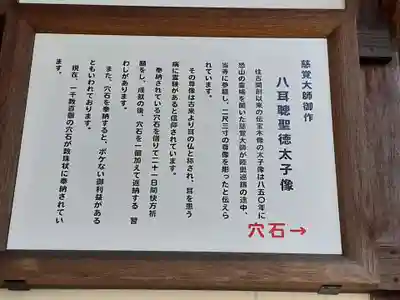 慈覚大師御作
八耳聰聖徳太子像
往古開創以来の伝宝木像の太子像は八五〇年に
恐山の霊場を開いた慈覚大師が御奥巡錫の途中、
当寺に参籠し、二尺三寸の尊像を彫ったと伝えら
れています。
その尊像は古来より耳の仏と称され、耳を患う
病に霊験があると信仰されています。
奉納されている穴石を借りて二十一日間快方祈
願をし、成就の後、穴石を一個加えて返納する 習
わしがあります。
また、穴石を奉納すると、ボケない御利益がある
ともいわれております。
現在、一千数百個の穴石が数珠状に奉納されてい
穴石→